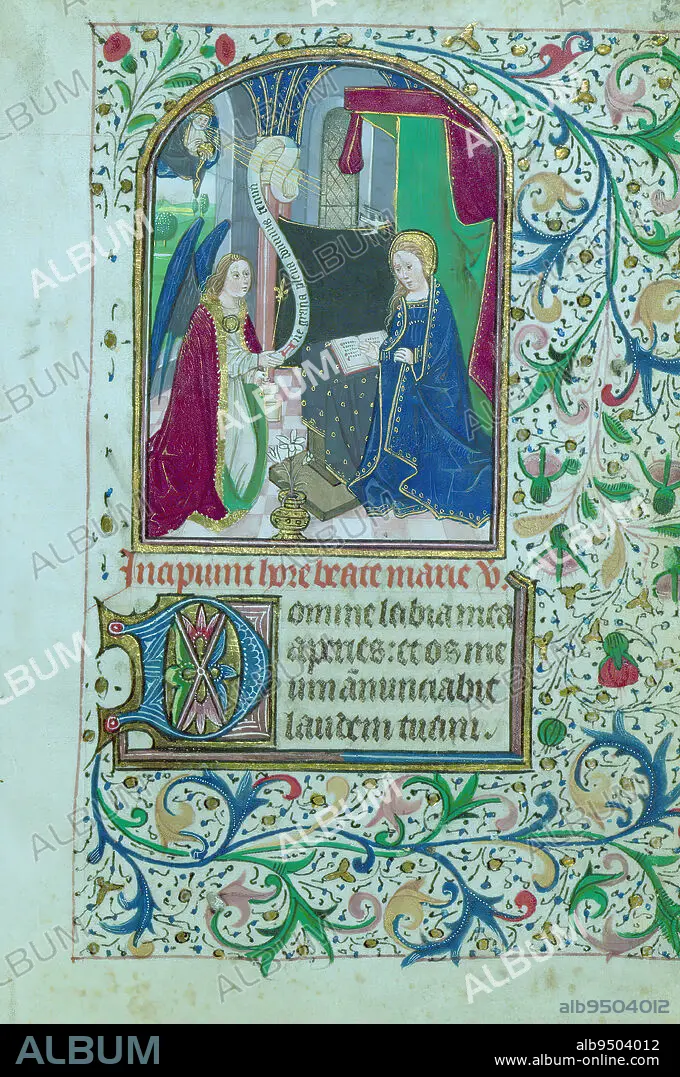 ue gratia plena dominus tecum
Incipiunt hore beate marie V.
Domine labia mea
aperies: et os me
um anunciabit
laudem tuam.
ALBUM
alb9504012
ALBUM
alb9504012
www.album-online.com